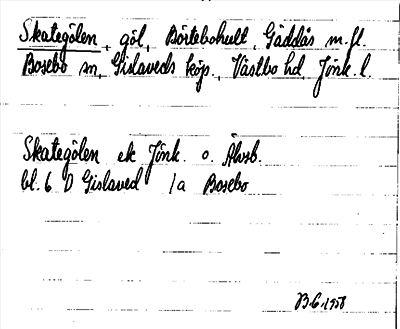 Skategölen, göl, Börtebohult, Gäddås m.fl.
Bosebo sn, Gislaveds köp., Västbo hd Jönk. l.
Skategölen ek Jönk. o. Älvsb.
bl. 6 D Gislaved 1a Bosebo
B.G. 1958